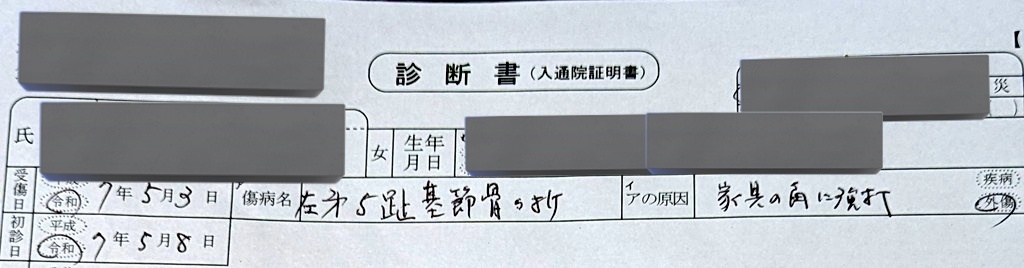 診断書(入通院証明書)
災
氏 女 生年月日
受傷日 令和 7年5月3日 傷病名 左第5趾基節骨々折 アの原因 家具の角に強打 疾病 外傷
初診日 平成 令和 7年5月8日